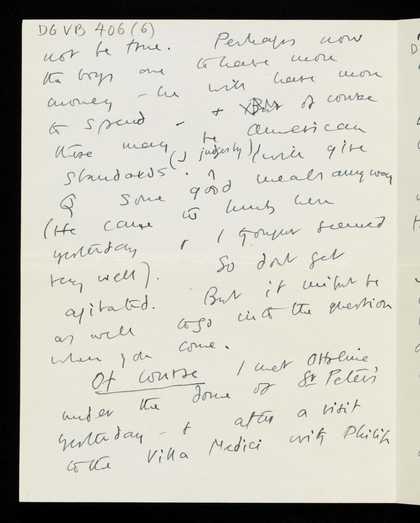 DG VB 406 (6)
not be true. Perhaps now
the boys are to have more
money – he will have more
to spend – + But of course
these may be American
standards. (I judgerly) I will give
Q some good meals anyway
(He came to lunch here
yesterday & I thought seemed
very well). So dont get
agitated. But it might be
as well to go into the question
when you come.
Of course I met Ottoline
under the dome of St Peter's
yesterday – + after a visit
to the Villa Medici with Philip